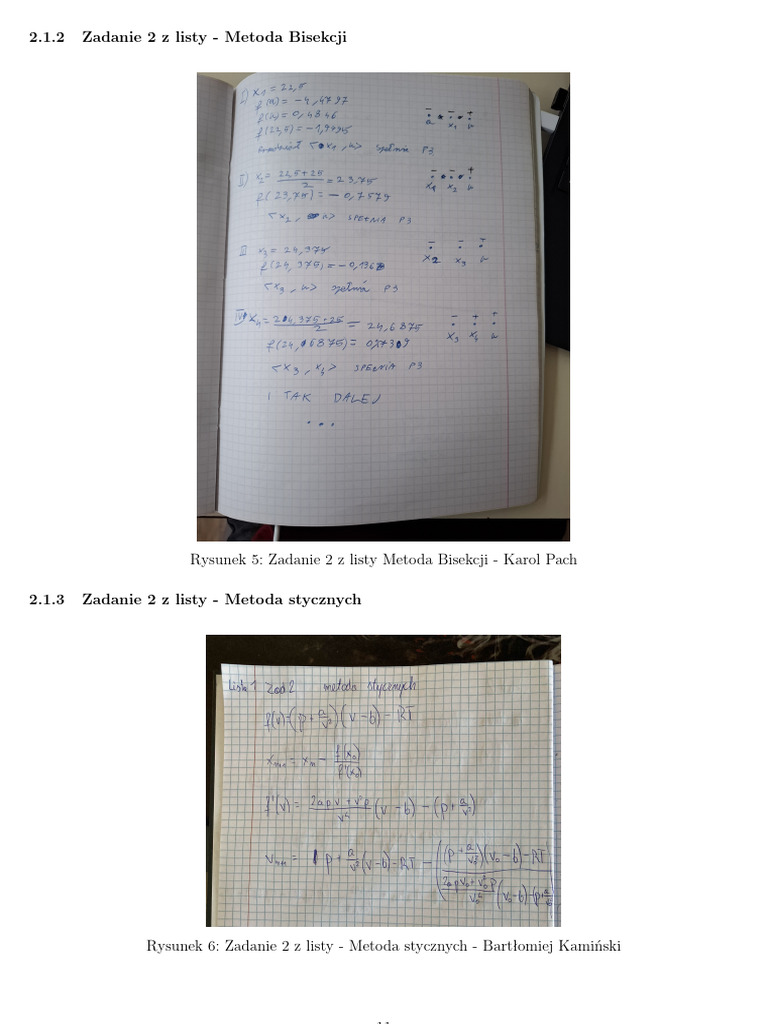 2.1.2 Zadanie 2 z listy - Metoda Bisekcji
I) x₁ = 22,5
f(a) = -4,4797
f(b) = 0,4846
f(22,5) = -1,9495
<x₁, b> spełnia P3
- - +
a x₁ b
II) x₂ = (22,5+25)/2 = 23,75
f(23,75) = -0,7579
<x₂, b> SPEŁNIA P3
- - +
x₁ x₂ b
III x₃ = 24,375
f(24,375) =
<x₃, b> spełnia P3
x₂ x₃ b
IV) x₄ = (24,375+25)/2 = 24,6875
f(24,6875) =
<x₃, x₄> SPEŁNIA P3
- + +
x₃ x₄ b
I TAK DALEJ
...
Rysunek 5: Zadanie 2 z listy Metoda Bisekcji - Karol Pach
2.1.3 Zadanie 2 z listy - Metoda stycznych
Lista 1 Zad 2 metoda stycznych
f(v) = (p + a/v²)(v-b) - RT
xₙ₊₁ = xₙ - f(x₀)/f'(x₀)
f'(v) = (2apv + v²p)/v⁴ (v-b) - (p + a/v²)
vₙ₊₁ = p + a/v² (v-b) - RT - ((p + a/v₀²)(v₀-b) - RT)/((2apv₀ + v₀²p)/v₀⁴ (v₀-b) - (p + a/v₀
Rysunek 6: Zadanie 2 z listy - Metoda stycznych - Bartłomiej Kamiński